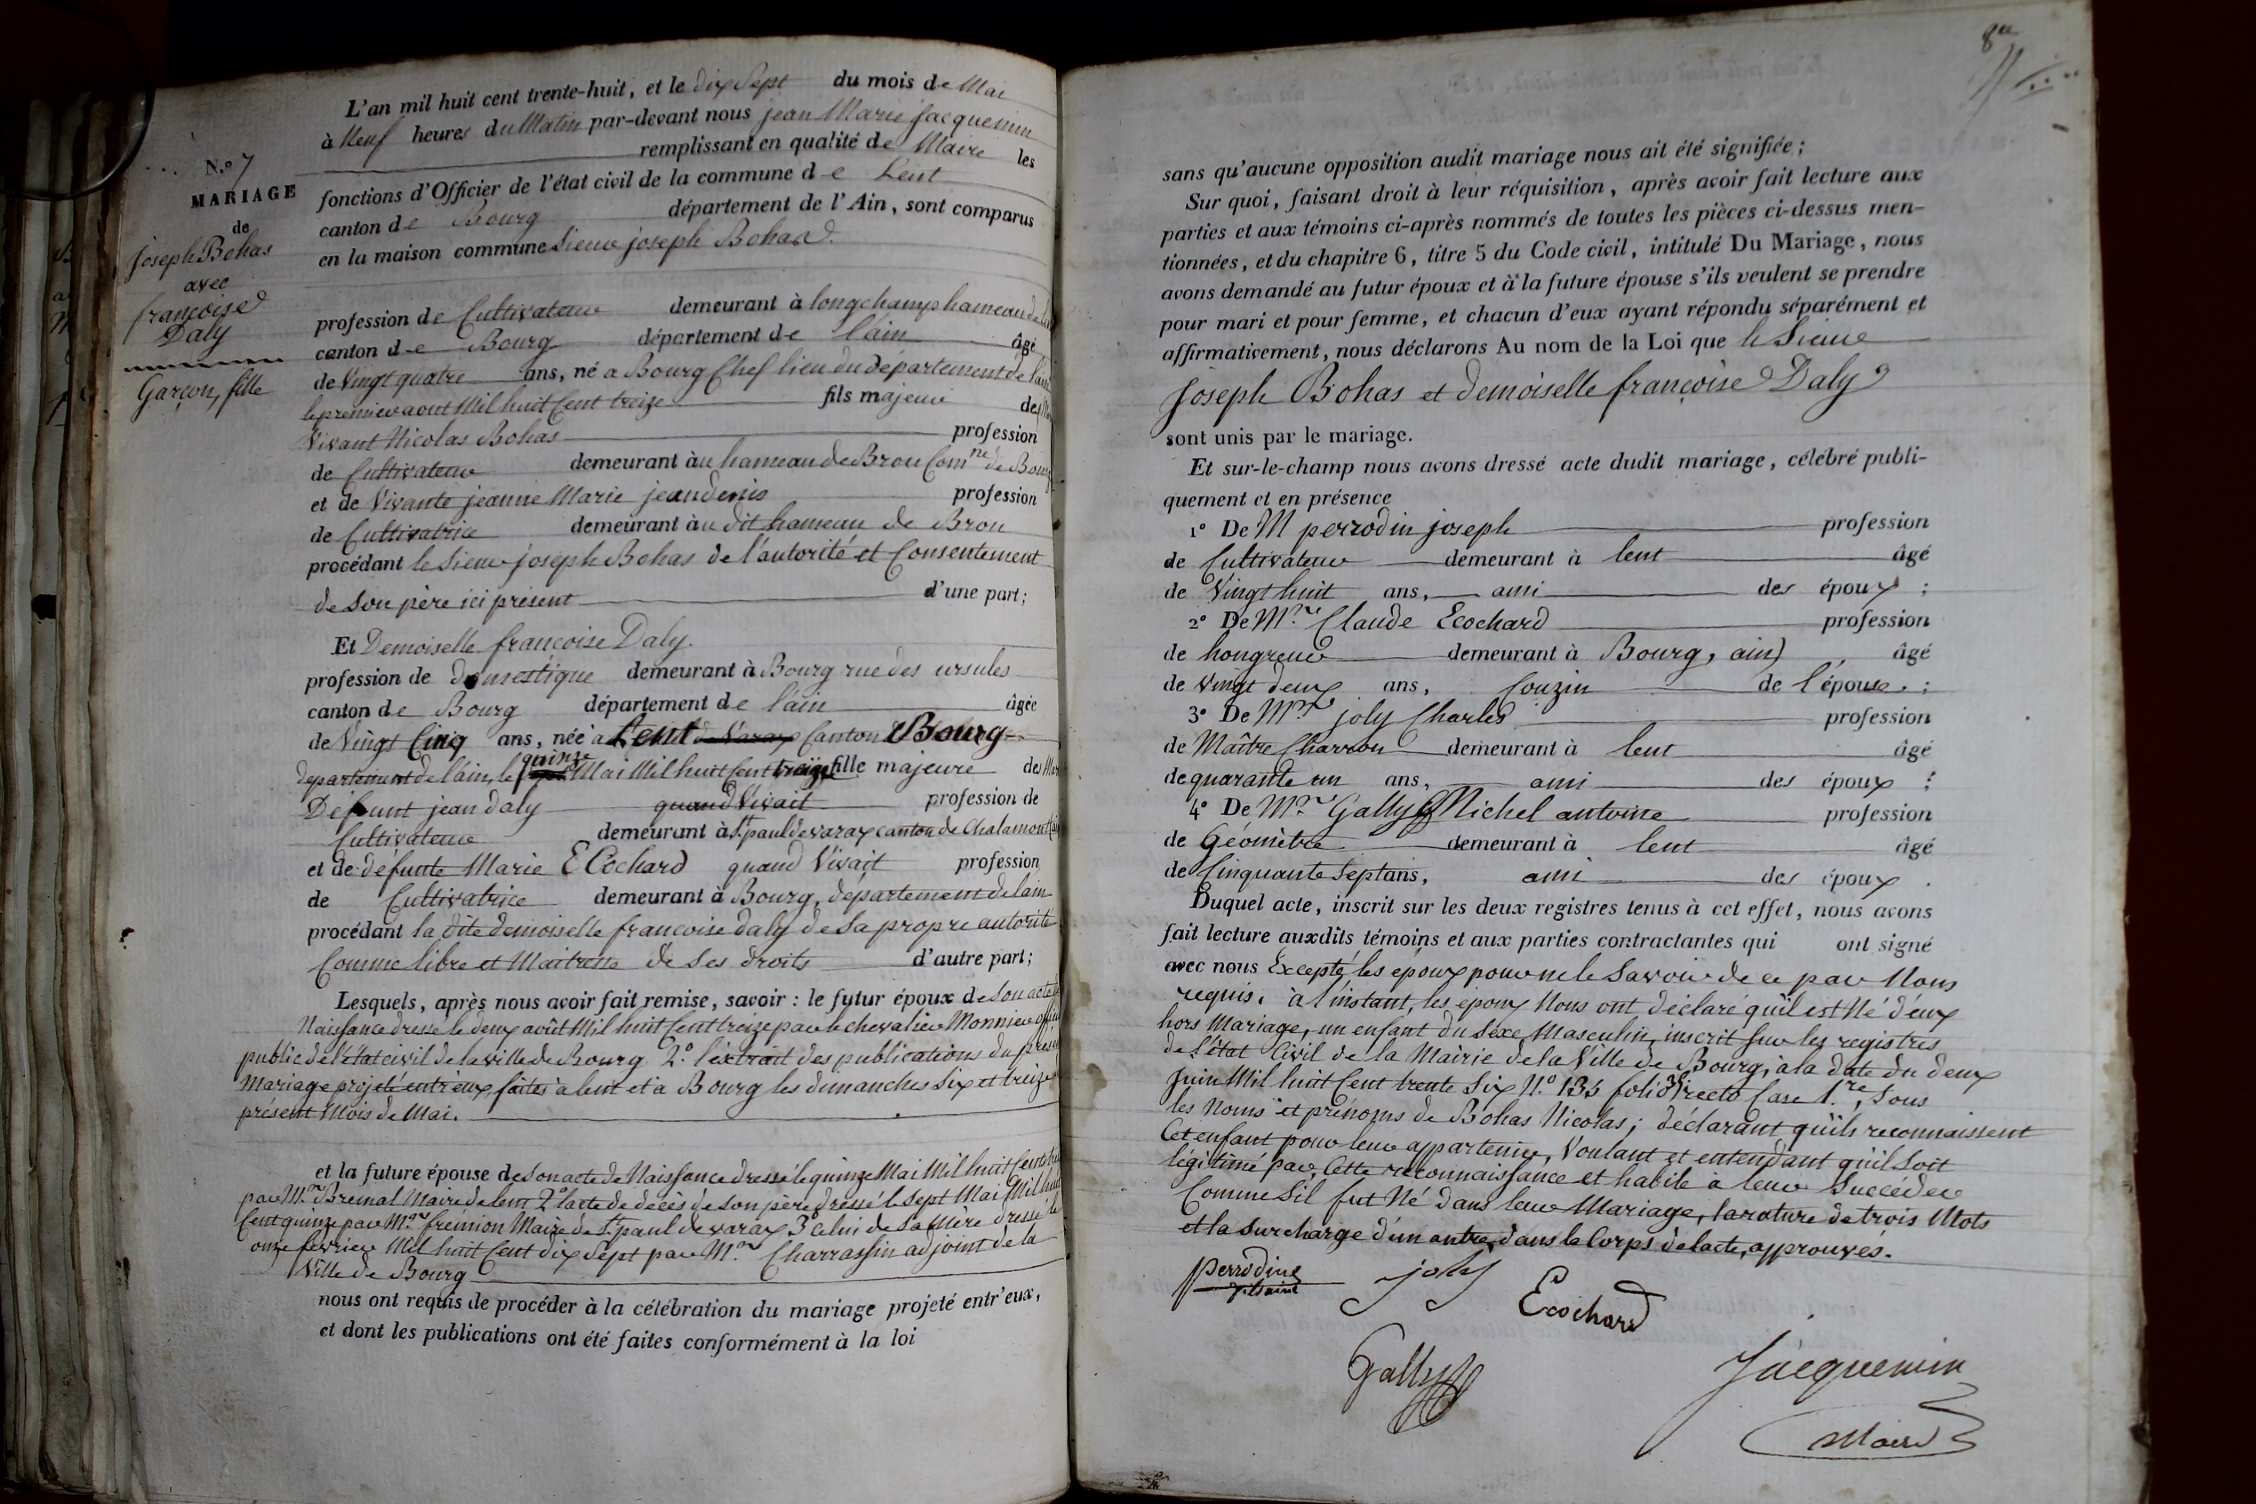 N.º 7
MARIAGE
de
joseph Bohas
avec
françoise
Daly
Garçon, fille
L'an mil huit cent trente-huit, et le dix Sept du mois de Mai
à Neuf heures du Matin par-devant nous jean Marie jacquemin
remplissant en qualité de Maire les
fonctions d'Officier de l'état civil de la commune de Lent
canton de Bourg département de l'Ain, sont comparus
en la maison commune Sieur joseph Bohas.
profession de Cultivateur demeurant à longchamps hameau de
canton de Bourg département de l'ain âgé
de Vingt quatre ans, né a Bourg Chef lieu du département de l'ain
le premier aout Mil huit Cent treize fils majeur des
Vivant Nicolas Bohas profession
de Cultivateur demeurant àu hameau de Brou Com.ne de Bourg
et de Vivante jeanne Marie jeandenis profession
de Cultivatrice demeurant àu dit hameau de Brou
procédant le Sieur joseph Bohas de l'autorité et Consentement
de Son père ici présent d'une part;
Et Demoiselle françoise Daly.
profession de domestique demeurant à Bourg rue des ursules
canton de Bourg département de l'ain âgée
de Vingt Cinq ans, née a Lent de Varax Canton de Bourg
département de l'ain, le quinze Mai Mil huit Cent treize fille majeure des
Défunt jean daly quand Vivait profession de
Cultivateur demeurant à S.t paul de varax canton de Chalamont
et de défunte Marie ECochard quand Vivait profession
de Cultivatrice demeurant à Bourg, département de lain
procédant la dite demoiselle francoise daly de Sa propre autorité
Comme libre et Maitresse de Ses droits d'autre part;
Lesquels, après nous avoir fait remise, savoir : le futur époux de Son acte de
Naissance dressé le deux août Mil huit Cent treize par le chevalier Monnier
public de l'état civil de la ville de Bourg 2.º l'extrait des publications du présent
Mariage projeté entr'eux, faites a lent et à Bourg les dimanches Six et treize
présent Mois de Mai.
et la future épouse de Son acte de Naissance dressé le quinze Mai Mil huit Cent
par M.r Bremal Maire de lent 2.º l'acte de décès de Son père dressé le Sept Mai Mil huit
Cent quinze par M.r fremion Maire de S.t paul de varax 3.º celui de Sa Mère dressé le
onze fevrier Mil huit Cent dix Sept par M.r Charrassin adjoint de la
Ville de Bourg
nous ont requis de procéder à la célébration du mariage projeté entr'eux,
et dont les publications ont été faites conformément à la loi
sans qu'aucune opposition audit mariage nous ait été signifiée ;
Sur quoi, faisant droit à leur réquisition, après avoir fait lecture aux
parties et aux témoins ci-après nommés de toutes les pièces ci-dessus men-
tionnées, et du chapitre 6, titre 5 du Code civil, intitulé Du Mariage, nous
avons demandé au futur époux et à la future épouse s'ils veulent se prendre
pour mari et pour femme, et chacun d'eux ayant répondu séparément et
affirmativement, nous déclarons Au nom de la Loi que le Sieur
joseph Bohas et demoiselle françoise Daly
sont unis par le mariage.
Et sur-le-champ nous avons dressé acte dudit mariage, célébré publi-
quement et en présence
1º De M perrodin joseph profession
de Cultivateur demeurant à lent âgé
de Vingt huit ans, ami des époux ;
2º De M.r Claude Ecochard profession
de hongreur demeurant à Bourg, ain) âgé
de vingt deux ans, Couzin de l'épouse ;
3º De M.r joly Charles profession
de Maître Charron demeurant à lent âgé
de quarante un ans, ami des époux ;
4º De M.r Gally Michel antoine profession
de Géomètre demeurant à lent âgé
de Cinquante Sept ans, ami des époux .
Duquel acte, inscrit sur les deux registres tenus à cet effet, nous avons
fait lecture auxdits témoins et aux parties contractantes qui ont signé
avec nous Excepté les époux pour ne le Savoir de ce par Nous
requis. à l'instant, les époux Nous ont déclaré qu'il est Né d'eux
hors Mariage, un enfant du Séxe Masculin, inscrit Sur les registres
de l'état Civil de la Mairie de la Ville de Bourg, à la date du deux
Juin Mil huit Cent trente Six N.º 135 folio 35 recto Case 1.re, Sous
les Noms et prénoms de Bohas Nicolas ; déclarant qu'ils reconnaissent
Cet enfant pour leur appartenir, Voulant et entendant qu'il Soit
légitimé par Cette reconnaissance et habile a leur Succéder
Comme S'il fut Né dans leur Mariage, la rature de trois Mots
et la Surcharge d'un autre, dans le Corps de lacte, approuvés.
perrodin joly
Ecochard
Gally Jacquemin
Maire